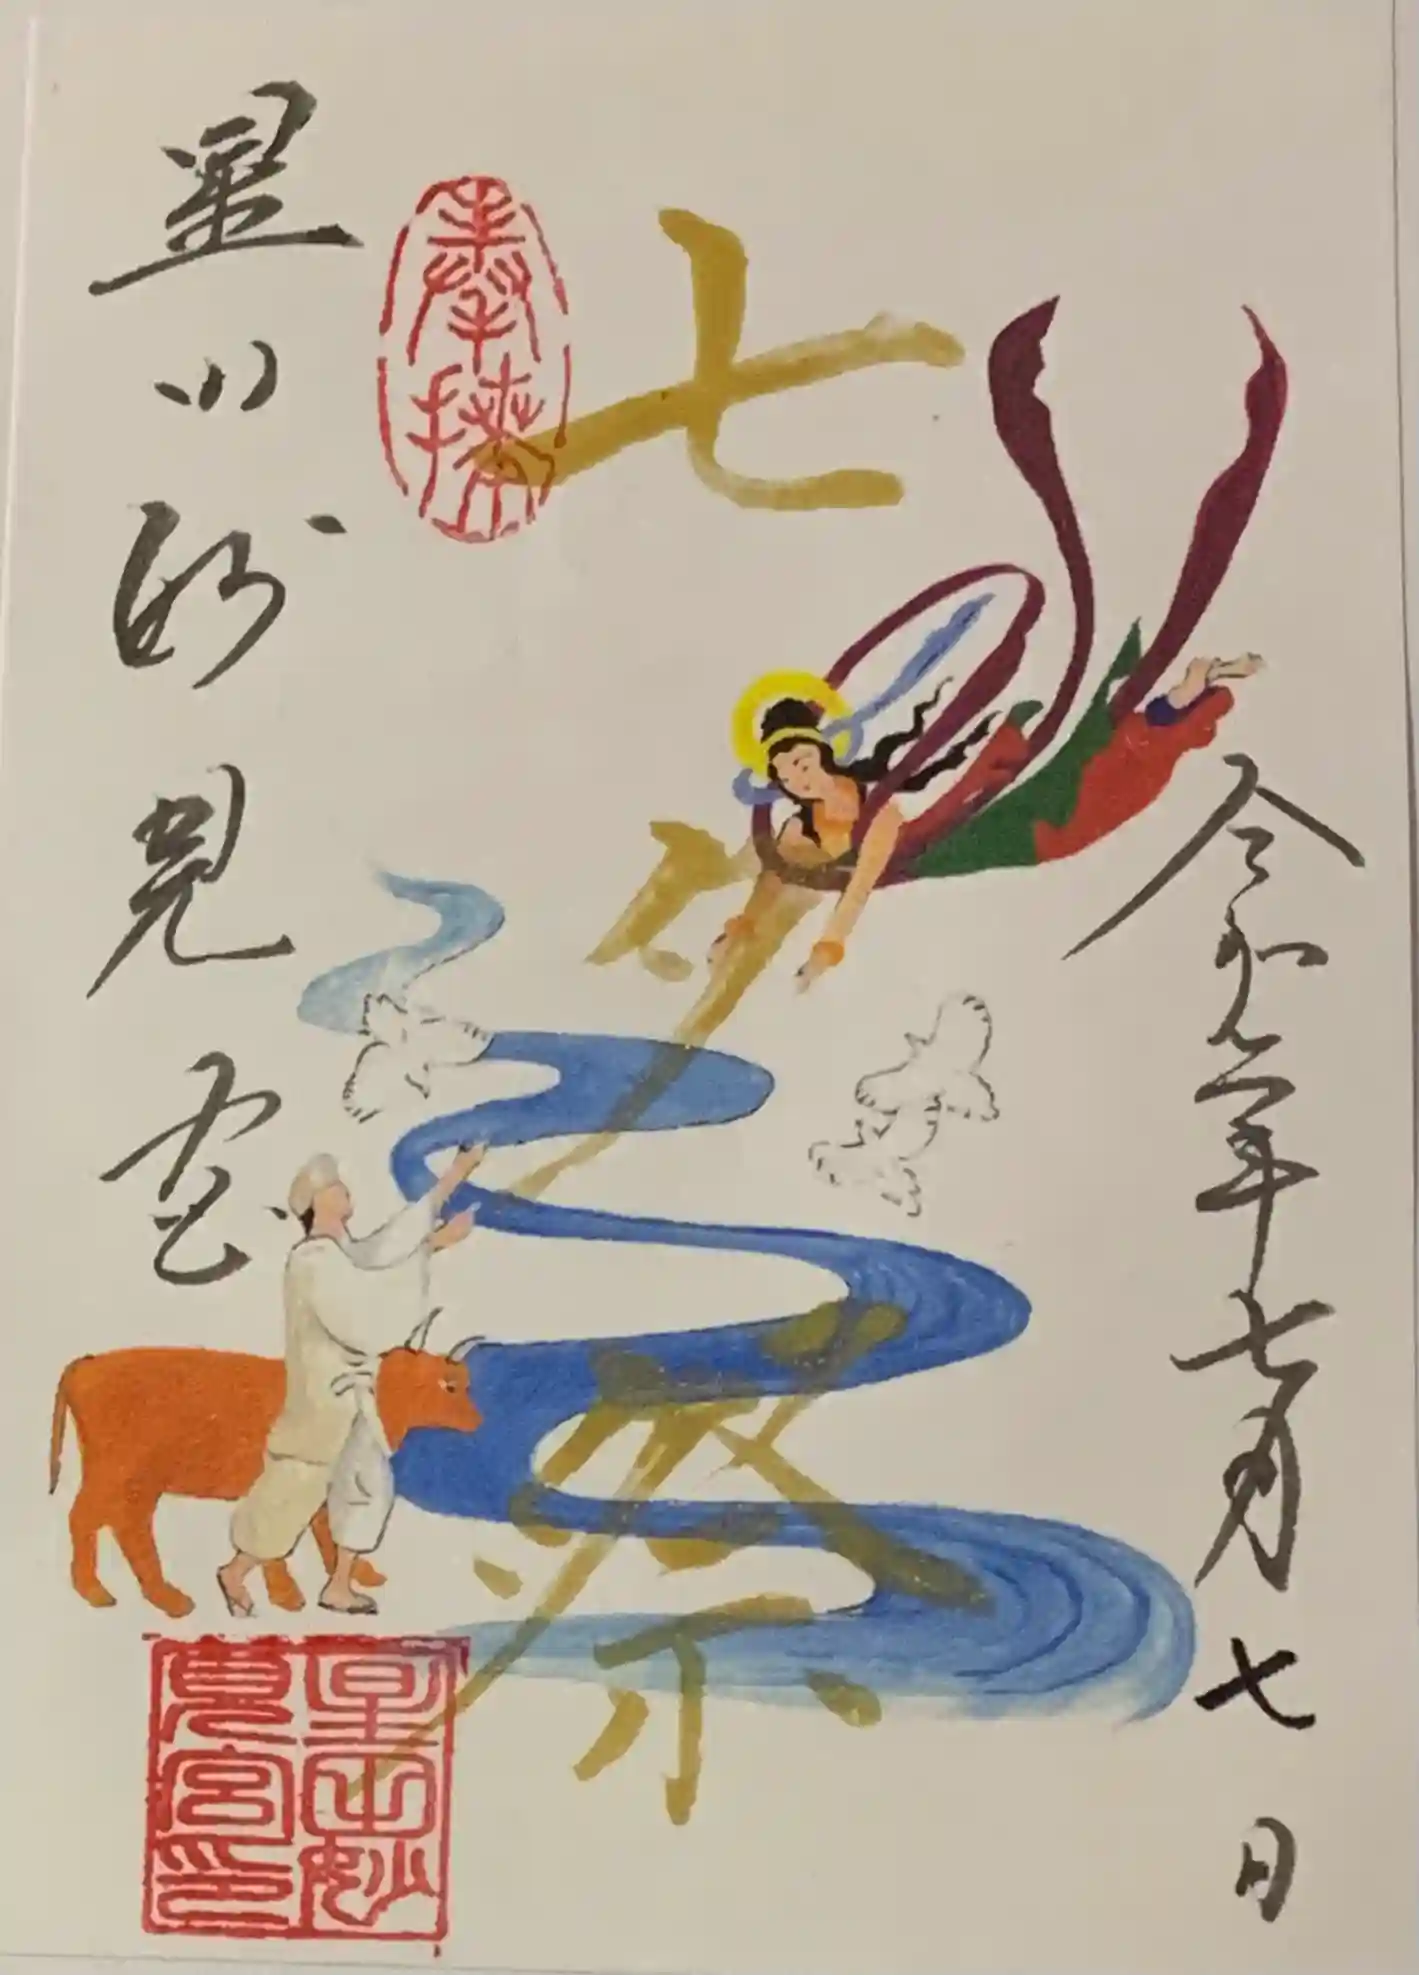 七夕祭
奉拝
令和六年七月七日
星山妙見宮
星山妙見宮印